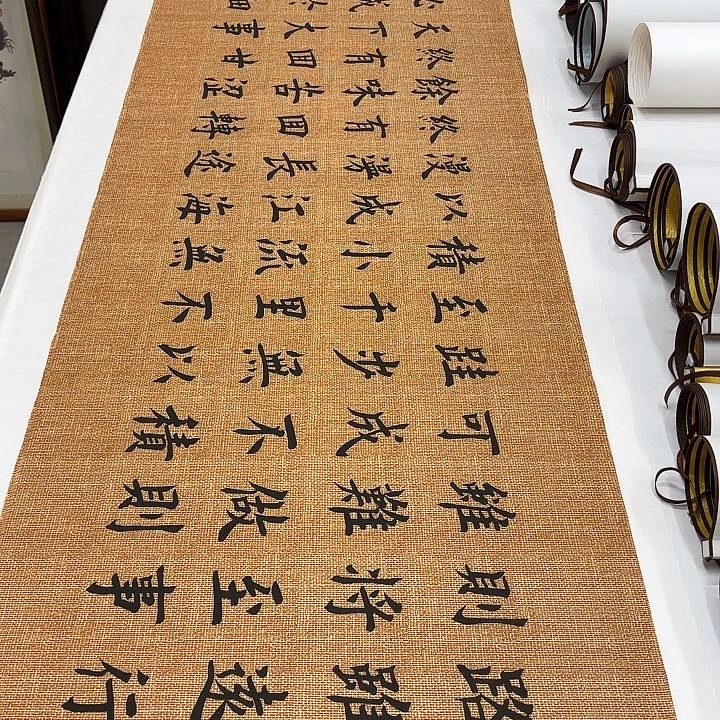 路雖遠行
則将至事
雖難做則
可成不積
跬步無以
至千里不
積小流無
以成江海
漫漫長途
終有回轉
餘味苦澀
終有回甘
天下大事